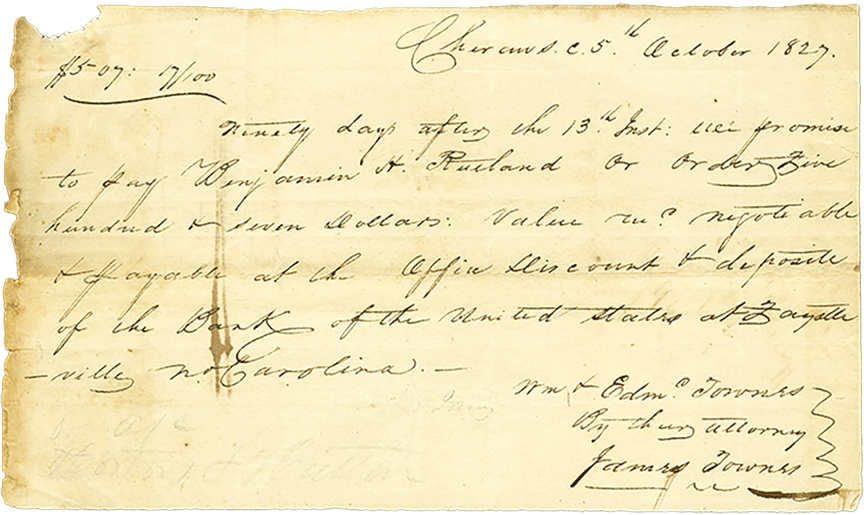 Cheraw S.C. 5th October 1827.
$507: 17/100
Ninety days after the 13th Inst: we promise
to pay Benjamin H. Rutland or Order Five
hundred & seven Dollars: Value recd negotiable
& payable at the Office Discount & deposite
of the Bank of the United States at Fayette
-ville No. Carolina. -
Wm & Edmd Townes
By their attorney
James Townes